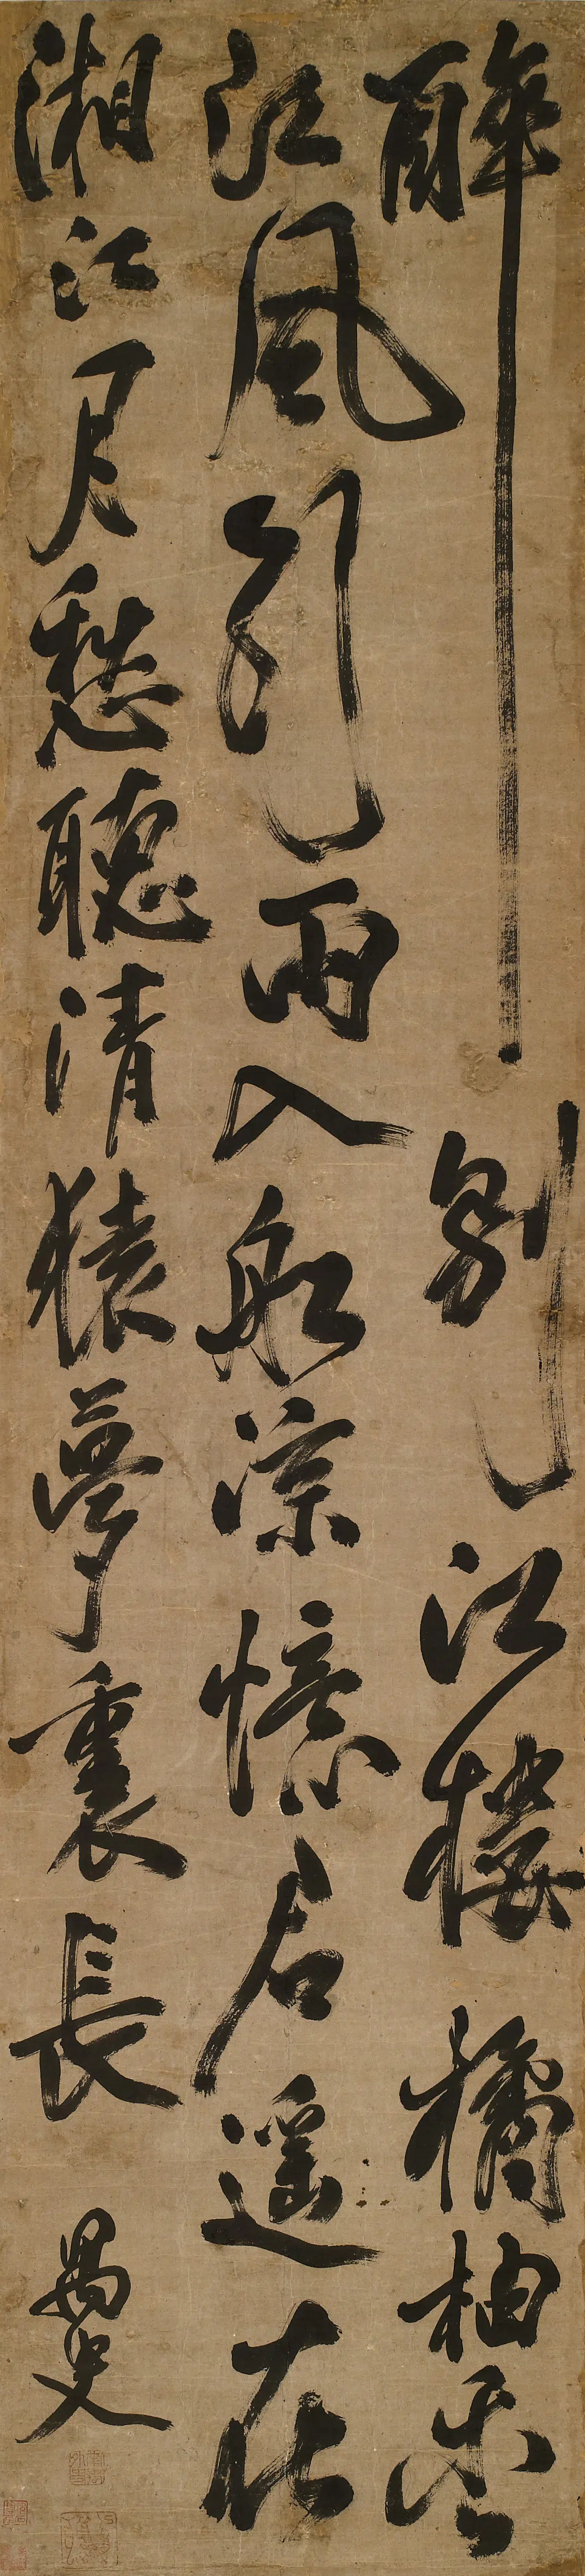 醉別江樓橘柚香
江風引雨入船涼憶君遙在
湘江月愁聽清猿夢裏長